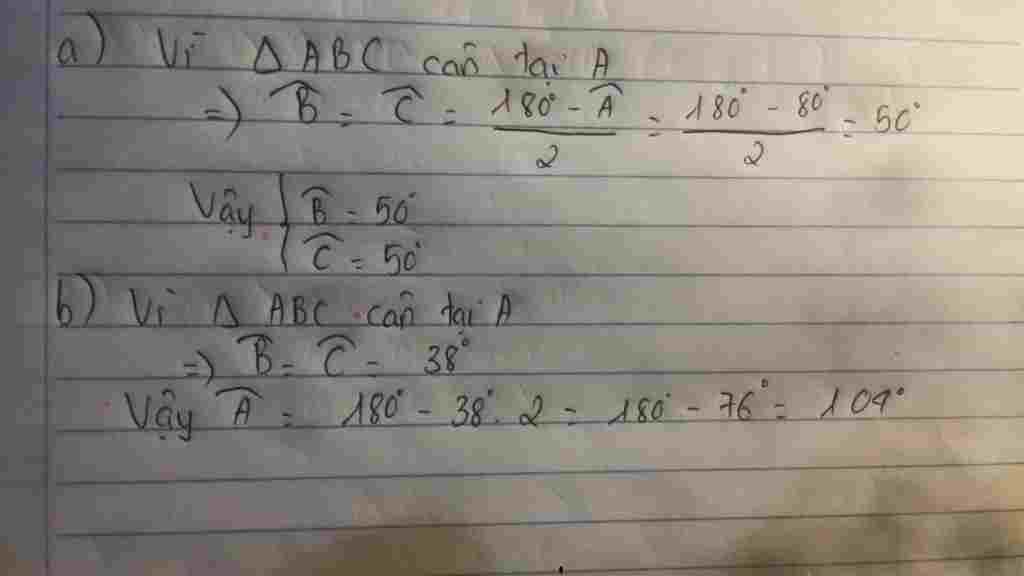 a) Vì Δ ABC cân tại A
=> B̂ = Ĉ = (180° - Â)/2 = (180° - 80°)/2 = 50°
Vậy { B̂ = 50°
{ Ĉ = 50°
b) Vì Δ ABC cân tại A
=> B̂ = Ĉ = 38°
Vậy Â = 180° - 38°. 2 = 180° - 76° = 104°